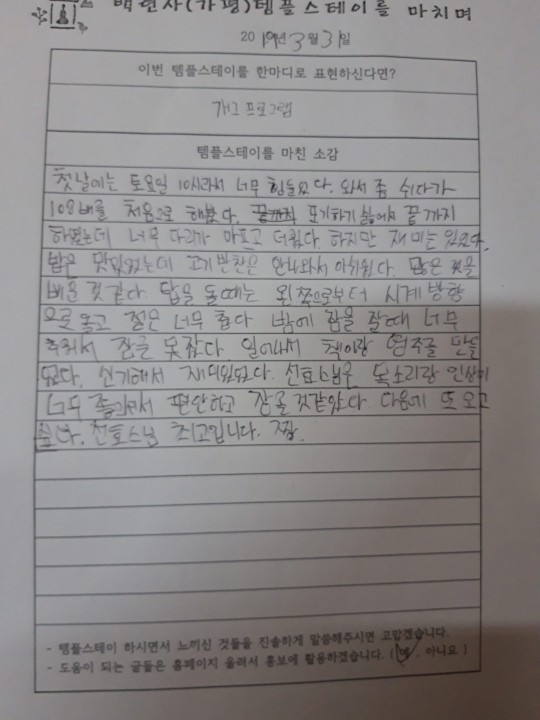 백련사(가평)템플스테이를 마치며
2019년 3월 31일
이번 템플스테이를 한마디로 표현하신다면?
개그 프로그램
템플스테이를 마친 소감
첫날에는 토요일 10시라서 너무 힘들었다. 와서 좀 쉬다가
108배를 처음으로 해봤다. 포기하기 싫어서 끝까지
하였는데 너무 다리가 아프고 더웠다. 하지만 재미는 있었다.
밥은 맛있었는데 고기반찬은 안나와서 아쉬웠다. 많은 것을
배운 것 같다. 탑을 돌때는 왼쪽으로부터 시계 방향
으로 돌고 절은 너무 춥다. 밤에 잠을 잘때 너무
추워서 잠을 못잤다. 일어나서 책이랑 염주를 만들
었다. 신기해서 재미있었다. 선효스님은 목소리랑 인상이
너무 좋으셔서 편안하고 잠올 것같았다. 다음에 또 오고
싶다. 선효스님 최고입니다. 짱.
- 템플스테이 하시면서 느끼신 것들을 진솔하게 말씀해주시면 고맙겠습니다.
- 도움이 되는 글들은 홈페이지 올려서 홍보에 활용하겠습니다. ( 예 , 아니요 )